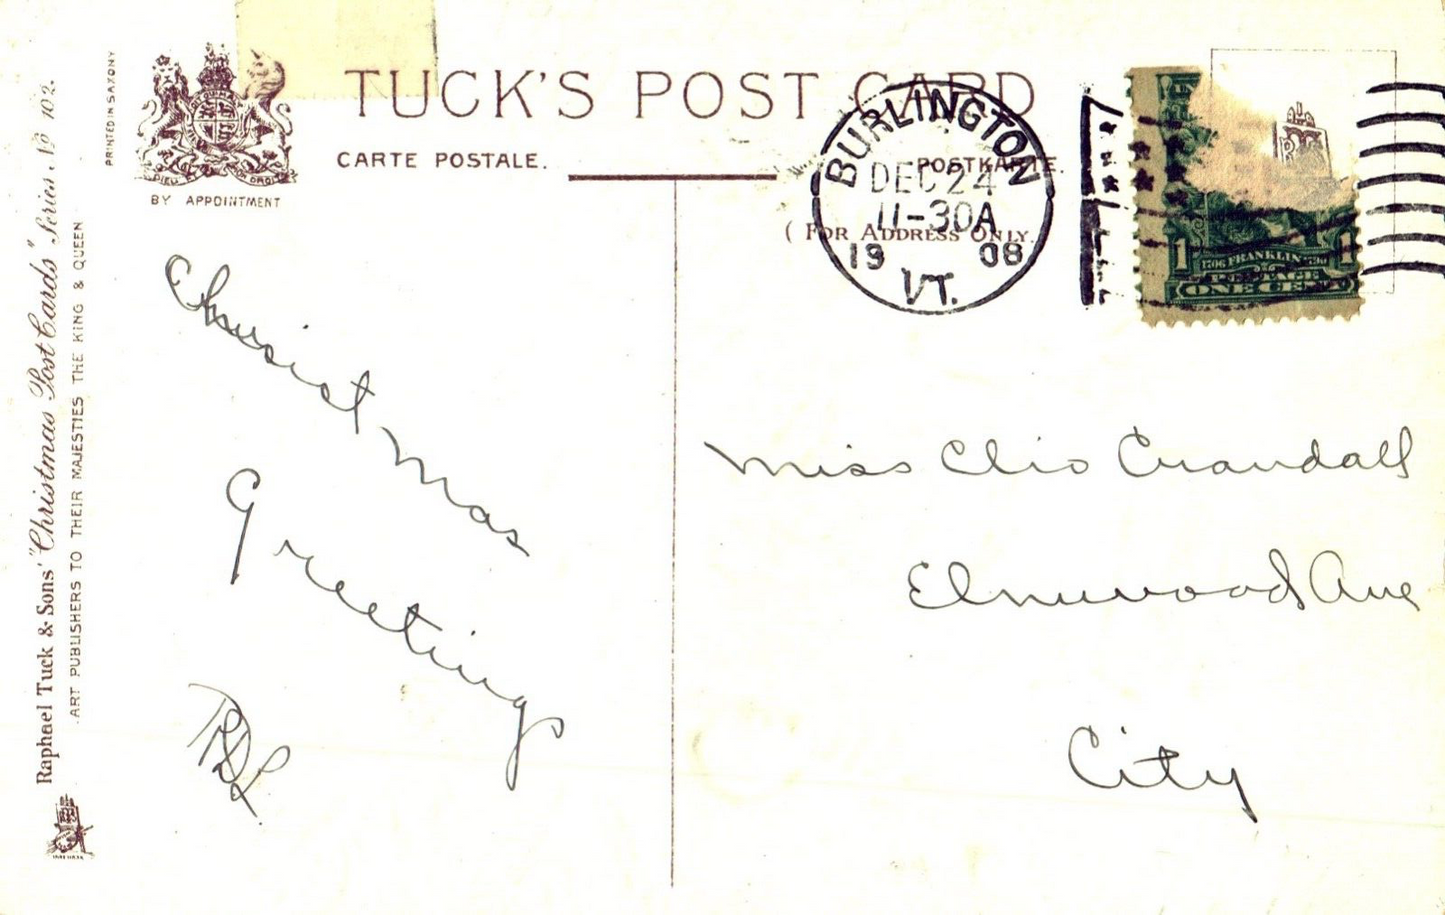 TUCK'S POST CARD
CARTE POSTALE.
POSTKARTE.
(FOR ADDRESS ONLY.
BY APPOINTMENT
PRINTED IN SAXONY
Raphael Tuck & Sons' "Christmas Post Cards" Series No 102.
ART PUBLISHERS TO THEIR MAJESTIES THE KING & QUEEN
BURLINGTON
DEC 24
11-30A
1908
VT.
1 1706 FRANKLIN 1790 1
POSTAGE
ONE CENT
Christmas
Greetings
Miss Clio Crandall
Elmwood Ave
City